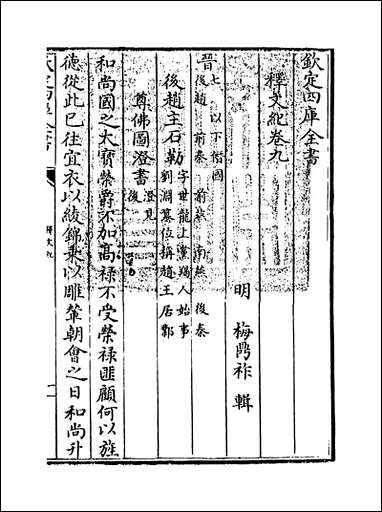 欽定四庫全書
釋文紀卷九
明 梅鼎祚 輯
晉七 以下僭國
後趙 前秦 前燕 南燕 後秦
後趙主石勒 字世龍上黨羯人始事
劉淵篡位稱趙王居鄴
尊佛圖澄書 澄見
後
和尚國之大寶榮爵不加高祿不受榮祿匪顧何以旌
德從此已往宜衣以綾錦乘以雕輦朝會之日和尚升
欽定四庫全書
釋文紀